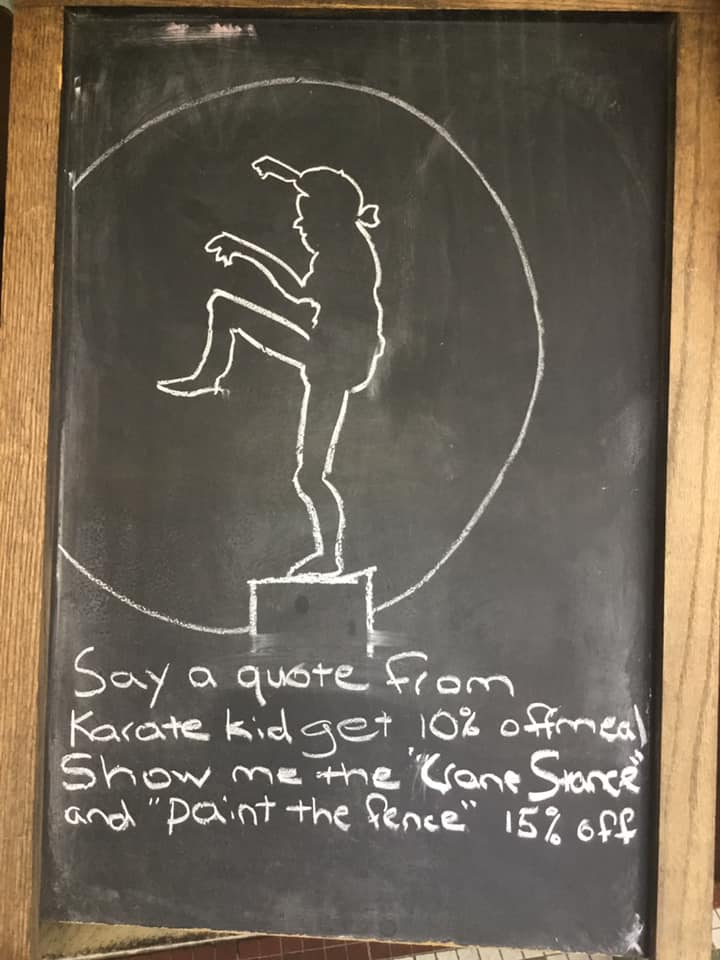 Say a quote from
Karate kid get 10% off meal
Show me the "Crane Stance"
and "paint the fence" 15% off